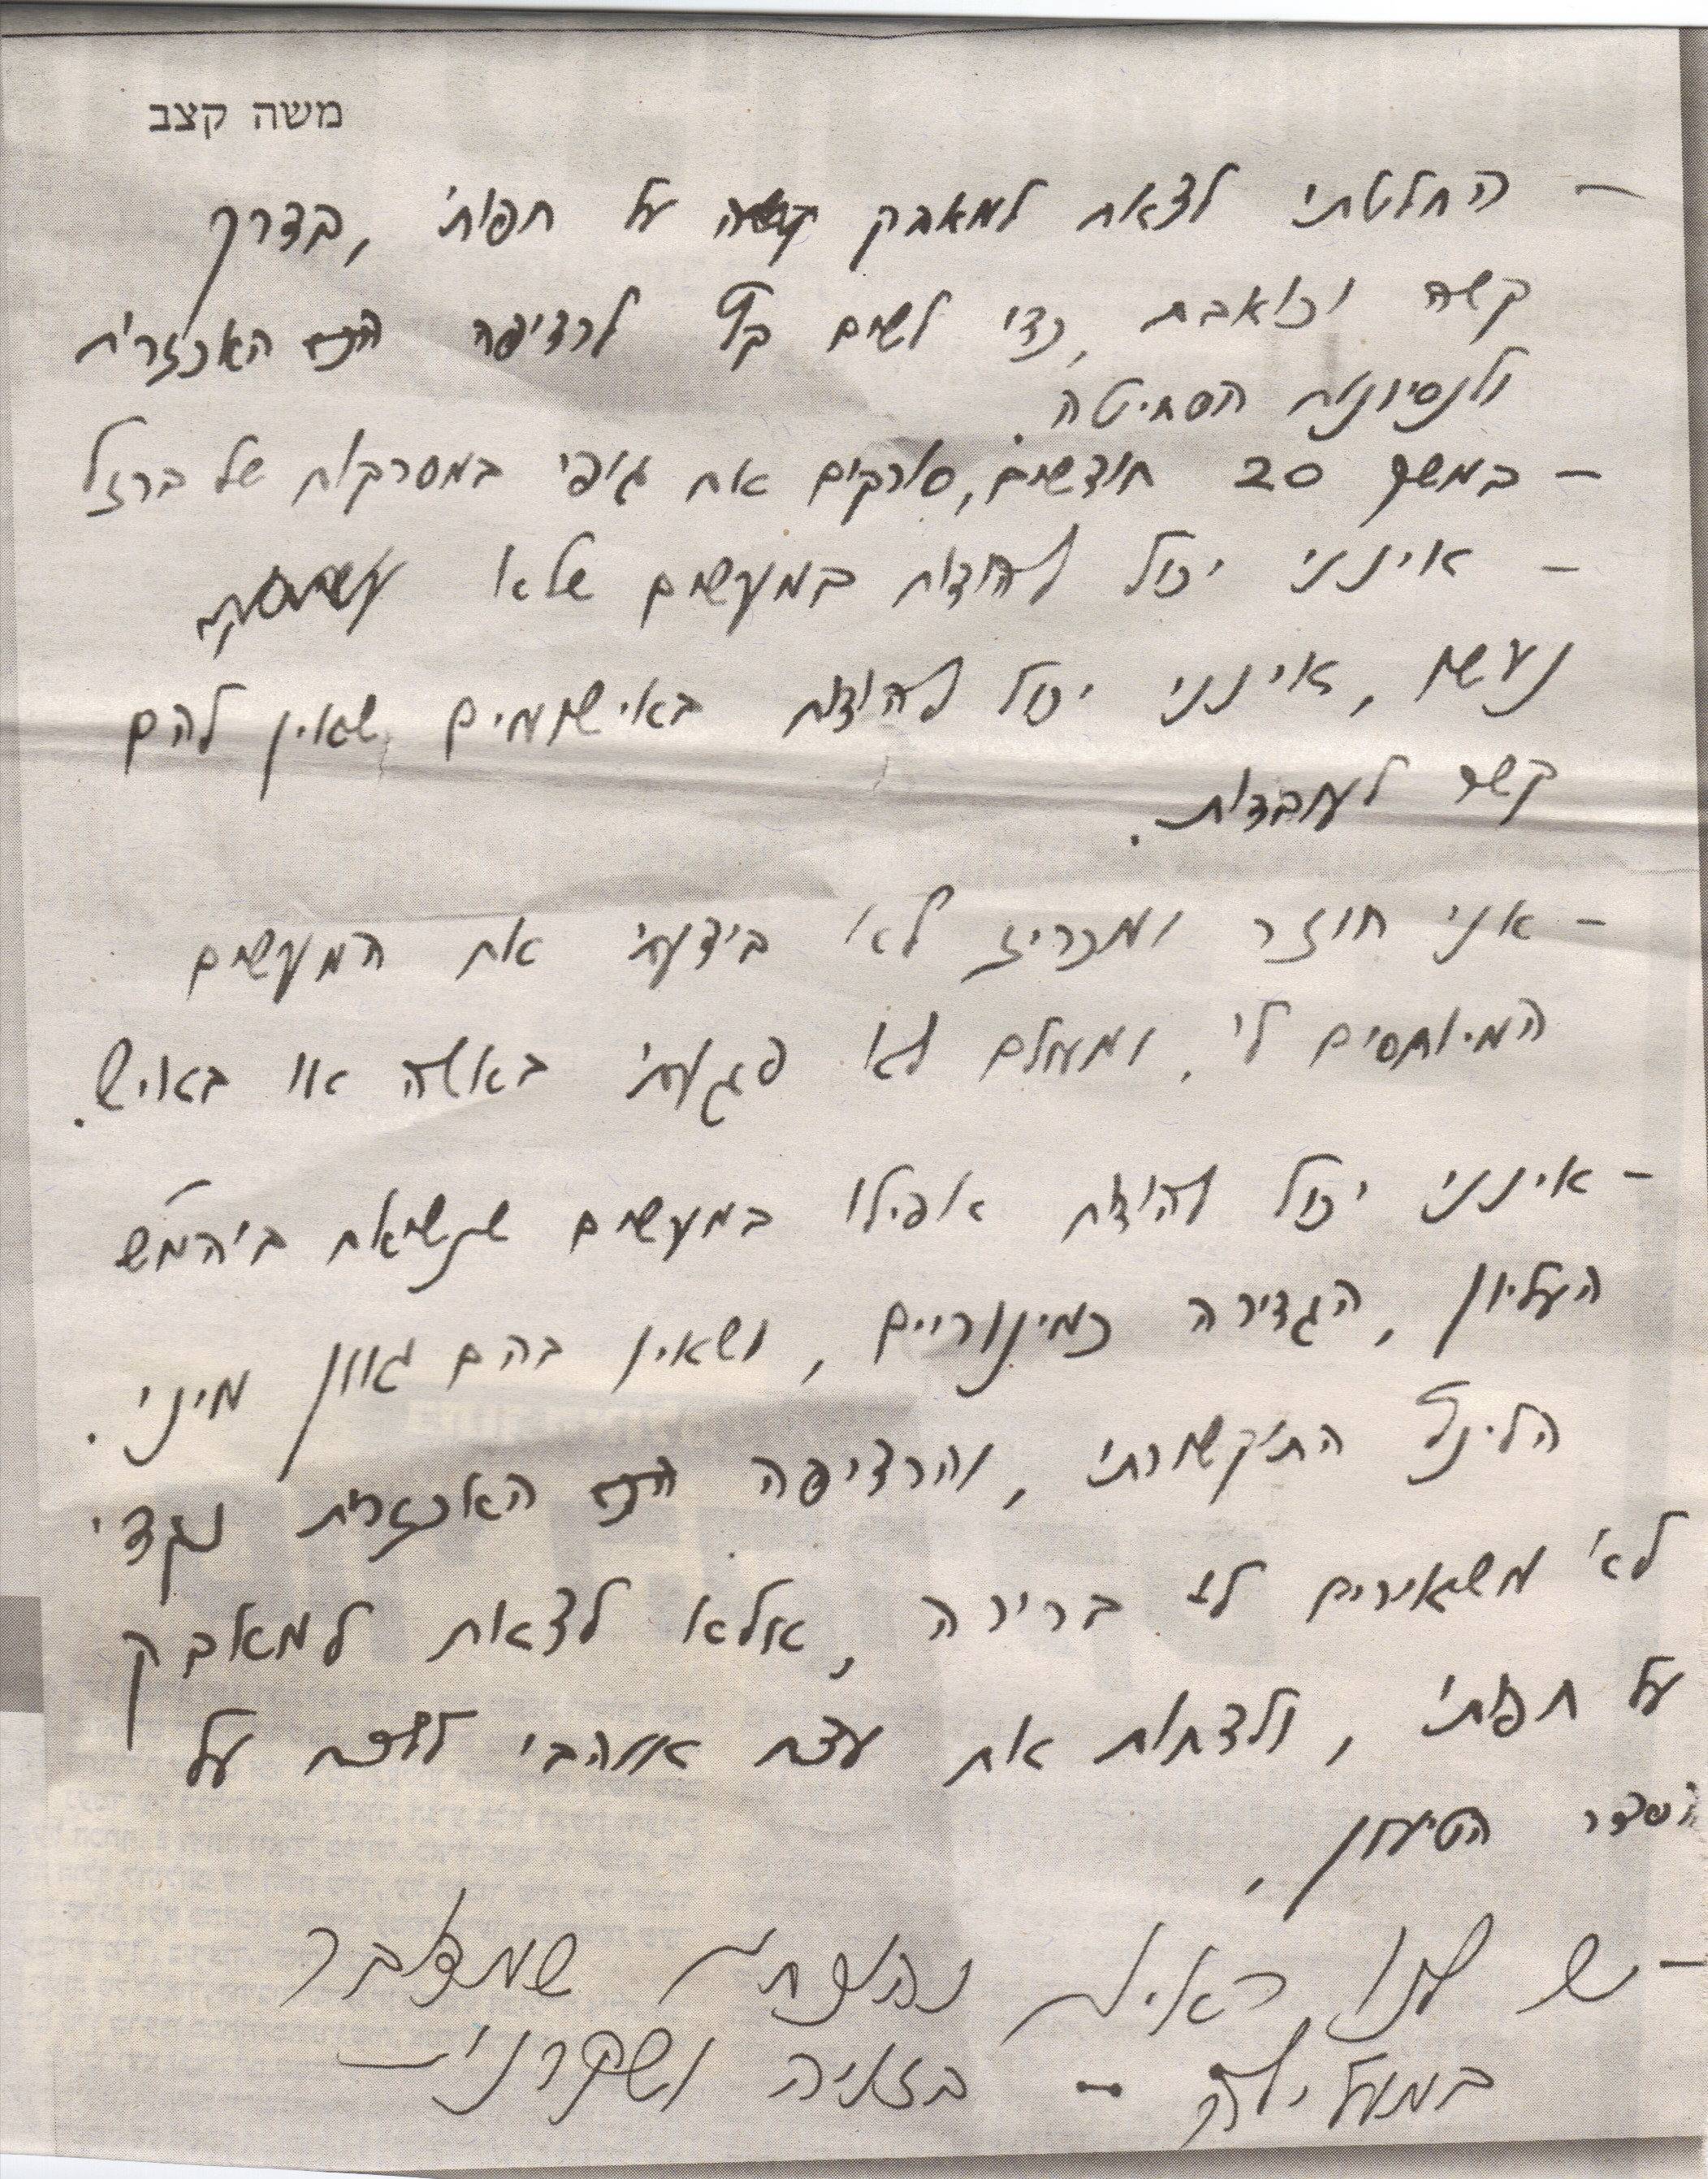 משה קצב
- החלטתי לצאת למאבק על חפותי, בדרך
קשה וכואבת, כדי לשים קץ לרדיפה האכזרית
ולנסיונות הסחיטה.
- במשך 20 חודשים, סורקים את גופי במסרקות של ברזל
- אינני יכול להודות במעשים שלא
נעשו, אינני יכול להודות באישומים שאין להם
קשר לעובדות.
- אני חוזר ומכריז לא ביצעתי את המעשים
המיוחסים לי, ומעולם לא פגעתי באשה או באיש.
- אינני יכול להודות אפילו במעשים שנשיאת ביהמ"ש
העליון, הגדירה כמינוריים, ושאין בהם גוון מיני.
הלינץ' התיקשורתי, והרדיפה האכזרית נגדי
לא משאירים לי ברירה, אלא לצאת למאבק
על חפותי, ולדחות את עצת אוהבי לחתום על
הסדר הטיעון.
- יש לנו ראיות שמדובר
במתלוננת - בזויה ושקרנית